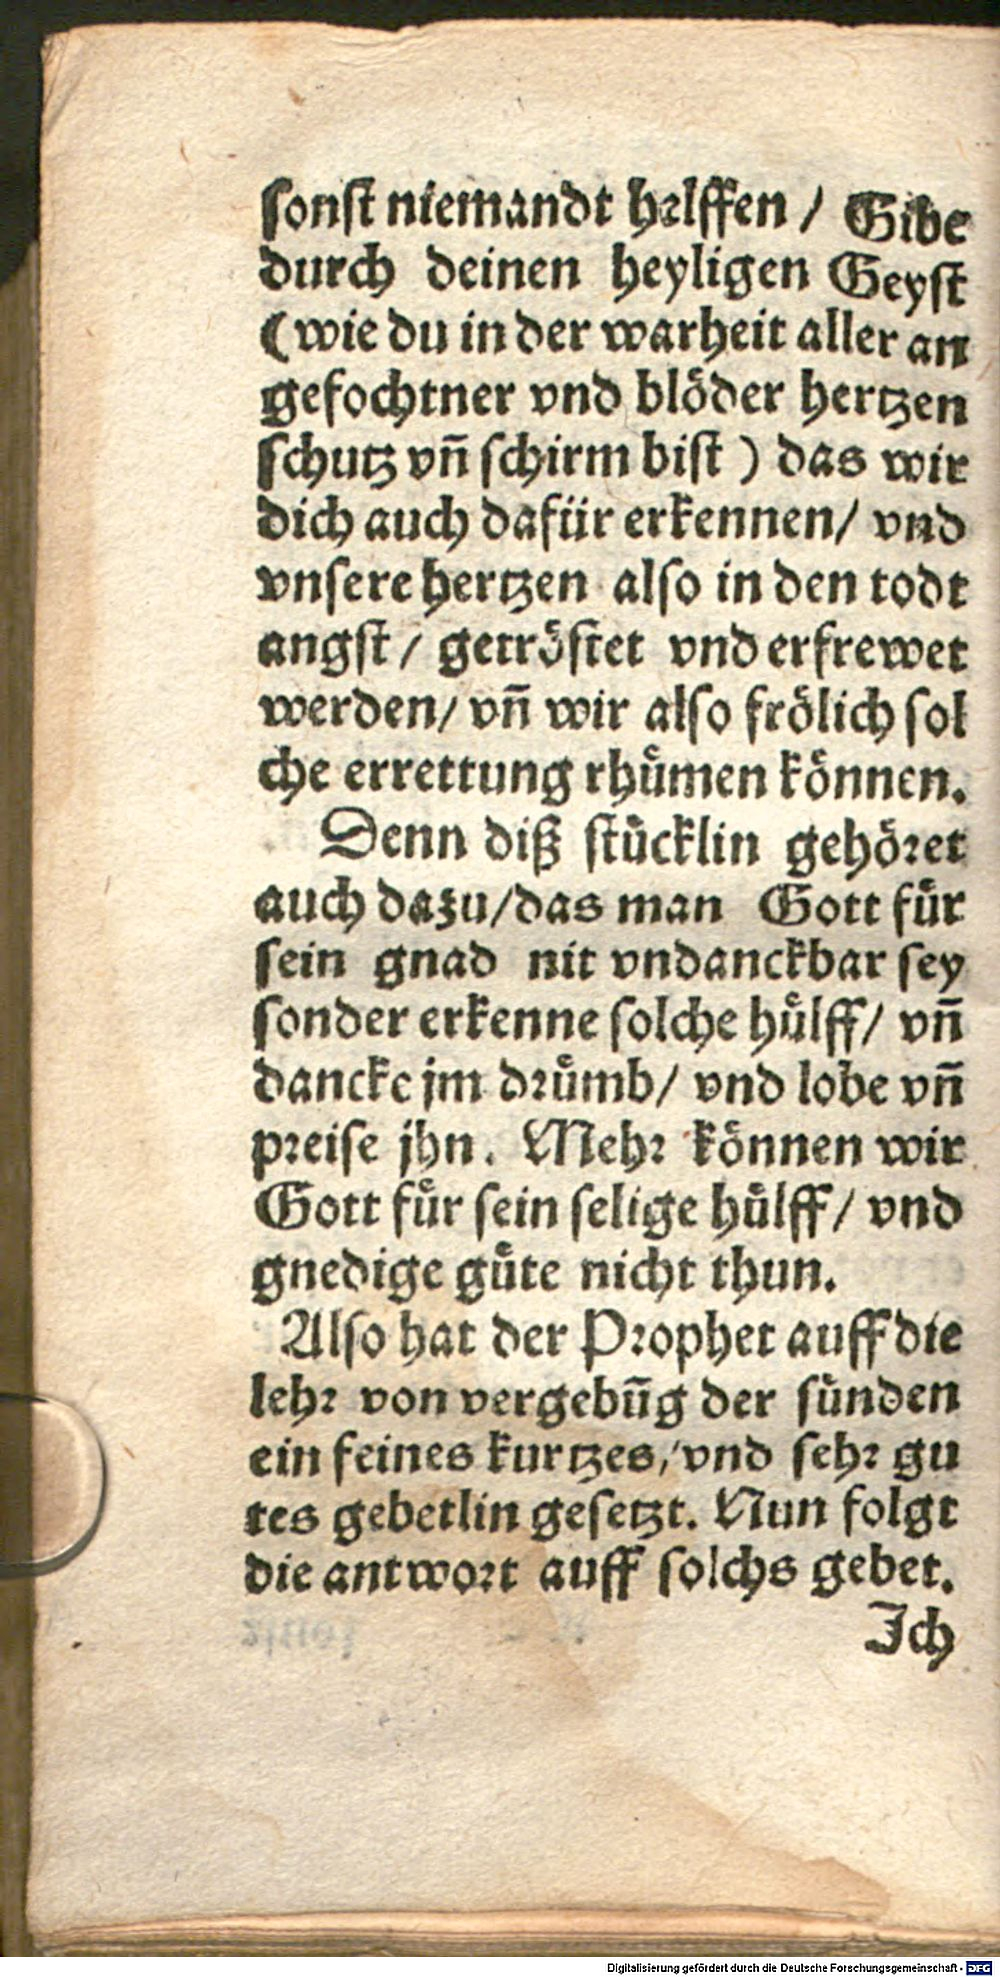 sonst niemandt helffen / Gibe
durch deinen heyligen Geyst
(wie du in der warheit aller an
gefochtner vnd blöder hertzen
schutz vñ schirm bist) das wir
dich auch dafür erkennen/ vnd
vnsere hertzen also in den todt
angst / getröstet vnd erfrewet
werden/ vñ wir also frölich sol
che errettung rhümen können.
Denn diß stücklin gehöret
auch dazu/das man Gott für
sein gnad nit vndanckbar sey
sonder erkenne solche hülff/ vñ
dancke jm drümb/ vnd lobe vñ
preise jhn. Mehr können wir
Gott für sein selige hülff/ vnd
gnedige güte nicht thun.
Also hat der Prophet auff die
lehr von vergebũg der sünden
ein feines kurtzes/ vnd sehr gu
tes gebetlin gesetzt. Nun folgt
die antwort auff solchs gebet.
Ich
Digitalisierung gefördert durch die Deutsche Forschungsgemeinschaft - DFG